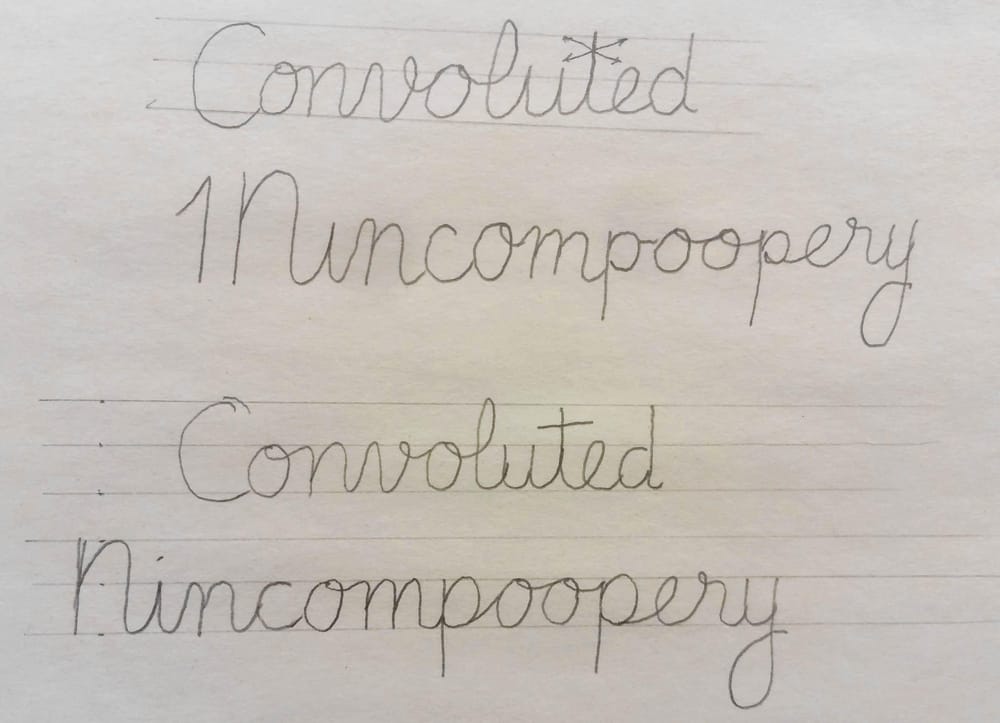 Convoluted
1 Nincompoopery
Convoluted
Nincompoopery